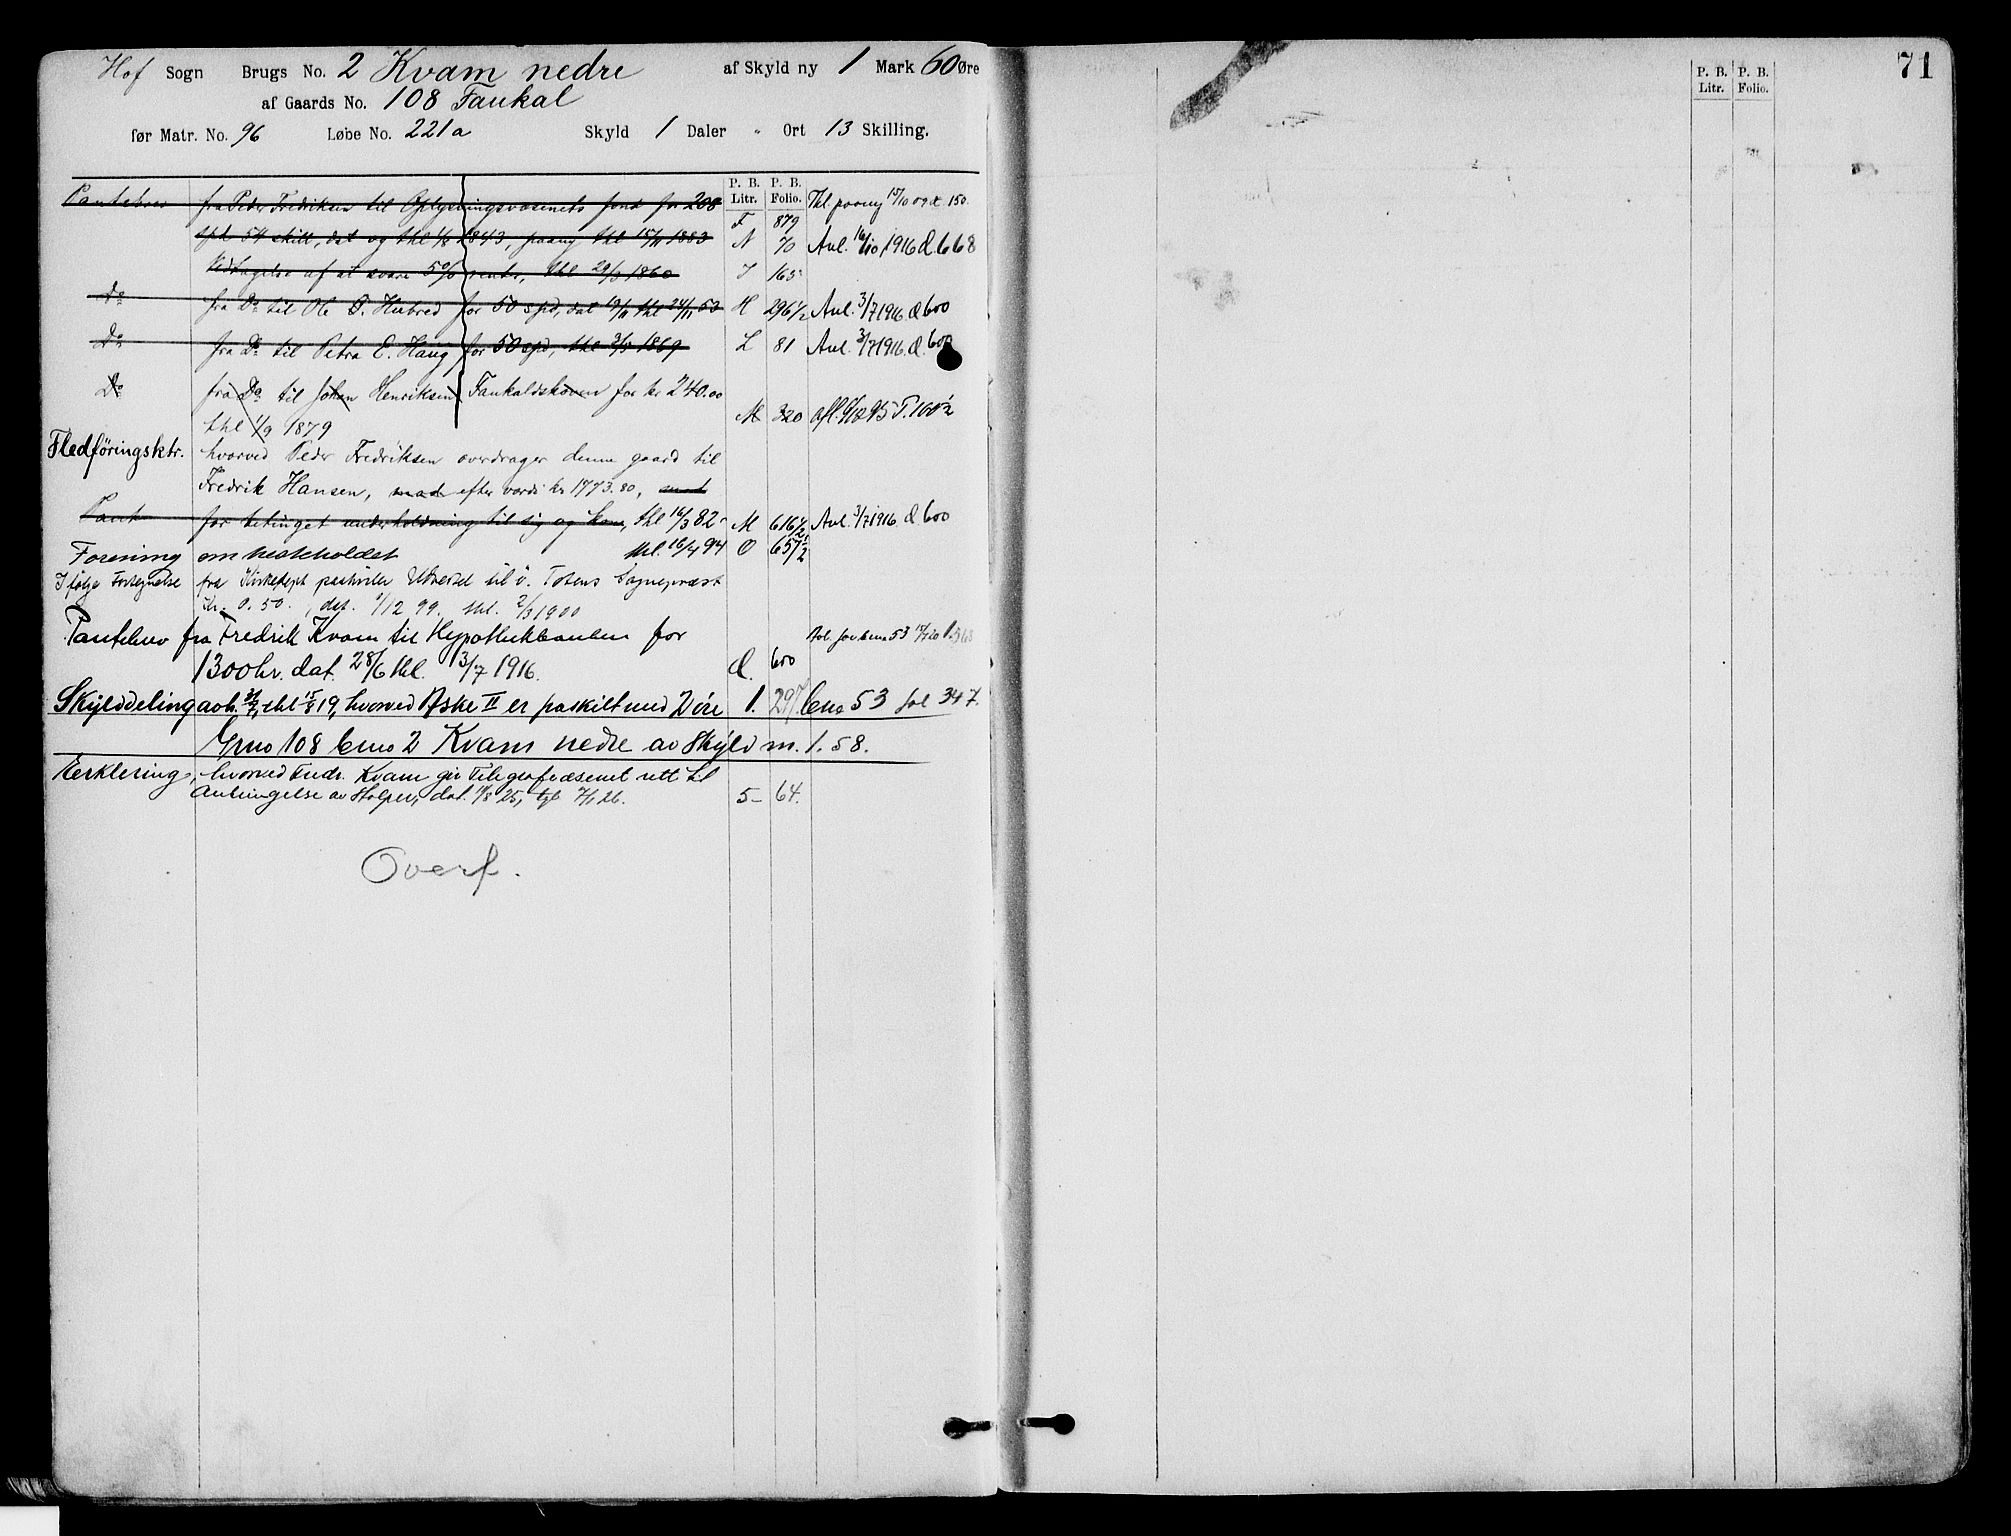 Hof Sogn Brugs No. 2 Kvam nedre af Skyld ny 1 Mark 60 Øre
af Gaards No. 108 Faukal
før Matr. No. 96 Løbe No. 221a Skyld 1 Daler " Ort 13 Skilling.
P. B. Litr. P. B. Folio.
Pantebrev fra Peder Fredriksen til Oplysningsvæsenets fond for 208 F 879 Thl. paany 15/10 09 150.
spd 54 skill, dat og thl 1/8 1843, paany thl 15/11 1883 N 70 Avl. 16/10 1916 d. 668
Vedtagelse af at svare 5% rente, thl 29/3 1860 I 165
Do fra Do til Ole P. Hubred for 50 spd, dat 19/11 thl 24/11 53 H 296 1/2 Avl. 3/7 1916 d 600
Do fra Do til Petra E. Haug for 50 spd, thl 3/5 1869 L 81 Avl. 3/7 1916. d. 600
Do fra Do til Johan Henriksen Faukaldskoven for kr 240.00
thl 1/9 1879 M 320 afl. 95 P. 100 1/2
Fledföringsktr. hvorved Peder Fredriksen overdrager denne gaard til
Fredrik Hansen, mod efter værdi kr 1773.80, mod
Pant for betinget underholdning til sig og kone, thl 16/3 82 M 616 1/2 Avl. 3/7 1916. d 600
Forening om makeholdet thl. 16/4 94 O 657 1/2
Ifølge Fortegnelse fra Kirkedept til ö. Totens Sognepræst
kr. 0.50., dat. 1/12 99. thl. 2/3 1900
Pantebrev fra Fredrik Kvam til Hypothekbanken for bno 53
1300 kr. dat. 28/6 thl. 3/7 1916. d. 600
Skylddeling avh. 31/7, thl 15/8 19, hvorved Aske II er fraskilt med 2 öre 1. 297 bno 53 fol 347.
Gno 108 bno 2 Kvam nedre av skyld m. 1.58.
Erklering, hvorved Fredr. Kvam gir Telegrafvæsenet rett til
anbringelse av stolper, dat. 11/8 25, tgl 7/1 26. 5 64.
Overf.
71
P. B. Litr. P. B. Folio.